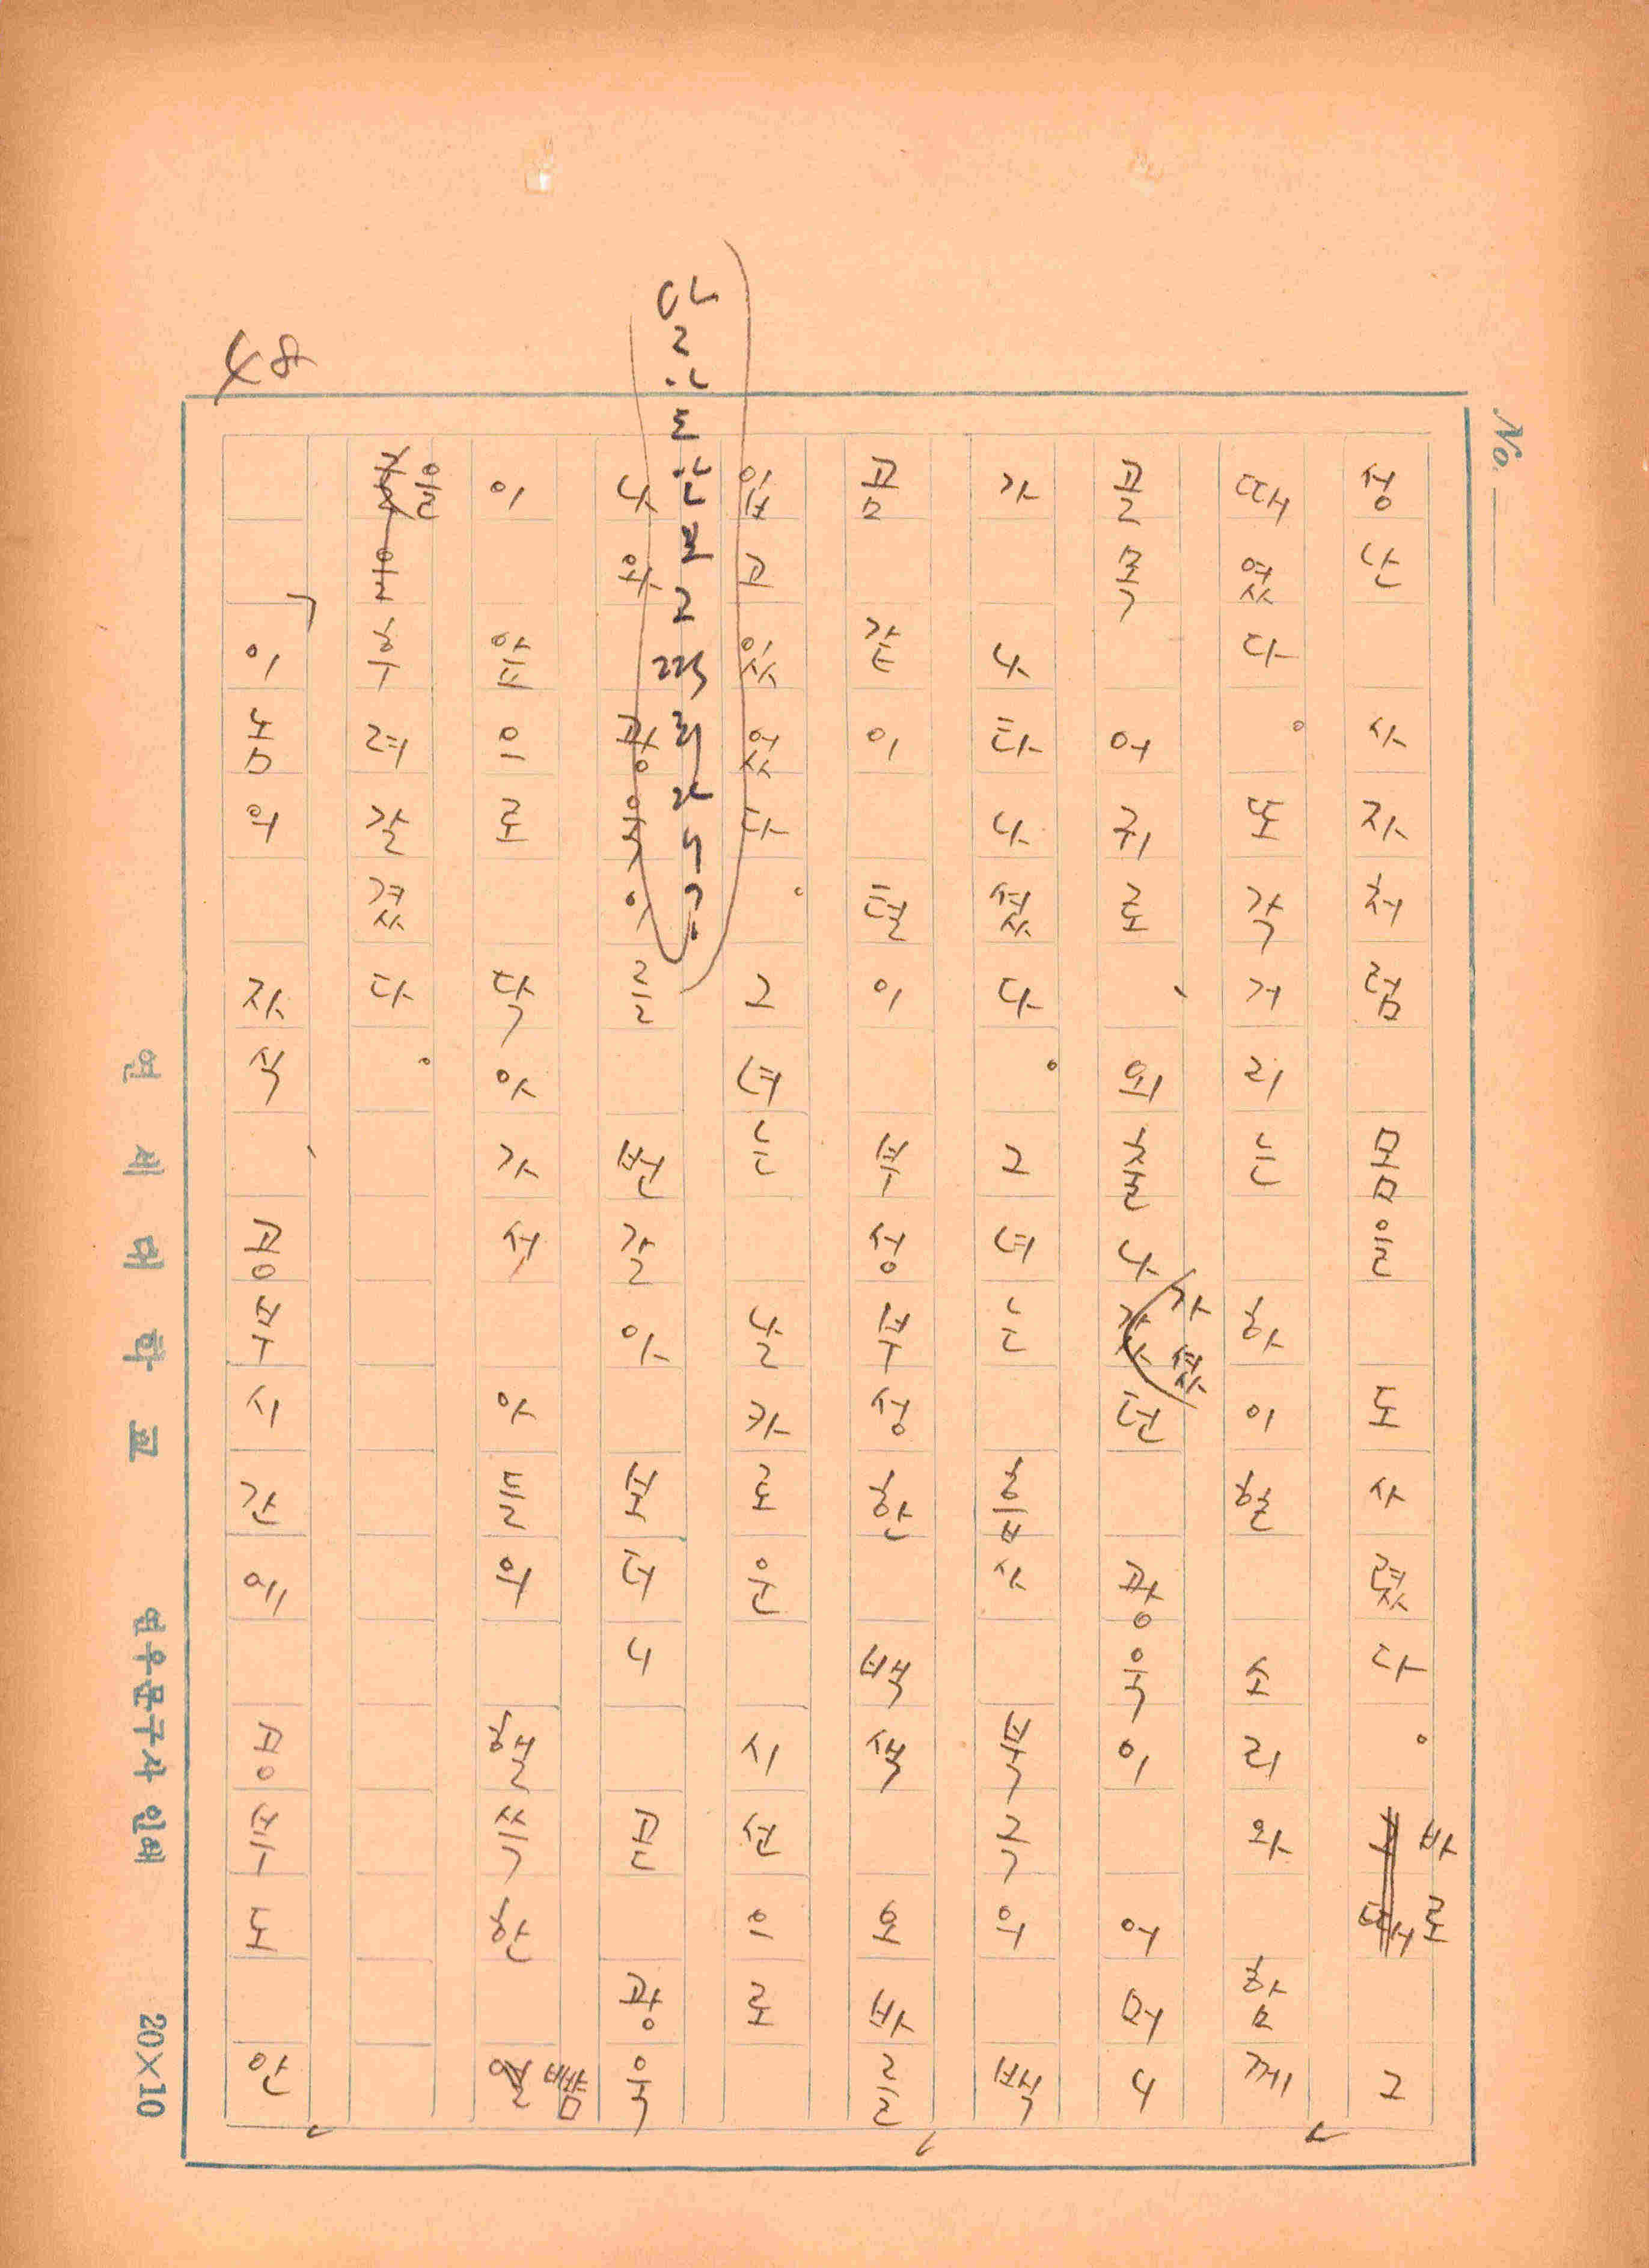 No.
성난 사자처럼 몸을 도사렸다. 바로 그
때였다. 또각거리는 하이힐 소리와 함께
골목 어귀로, 외출나가셨던 광욱이 어머니
가 나타나셨다. 그녀는 흡사 북극의 백
곰 같이 털이 부성부성한 백색 오바를
입고 있었다. 그녀는 날카로운 시선으로
나와 광욱이를 번갈아 보더니 곧 광욱
이 앞으로 닥아가서 아들의 핼쓱한 뺨
을 후려갈겼다.
「이놈의 자식, 공부시간에 공부도 안
48
연세대학교 연우문구사 인쇄 20×10